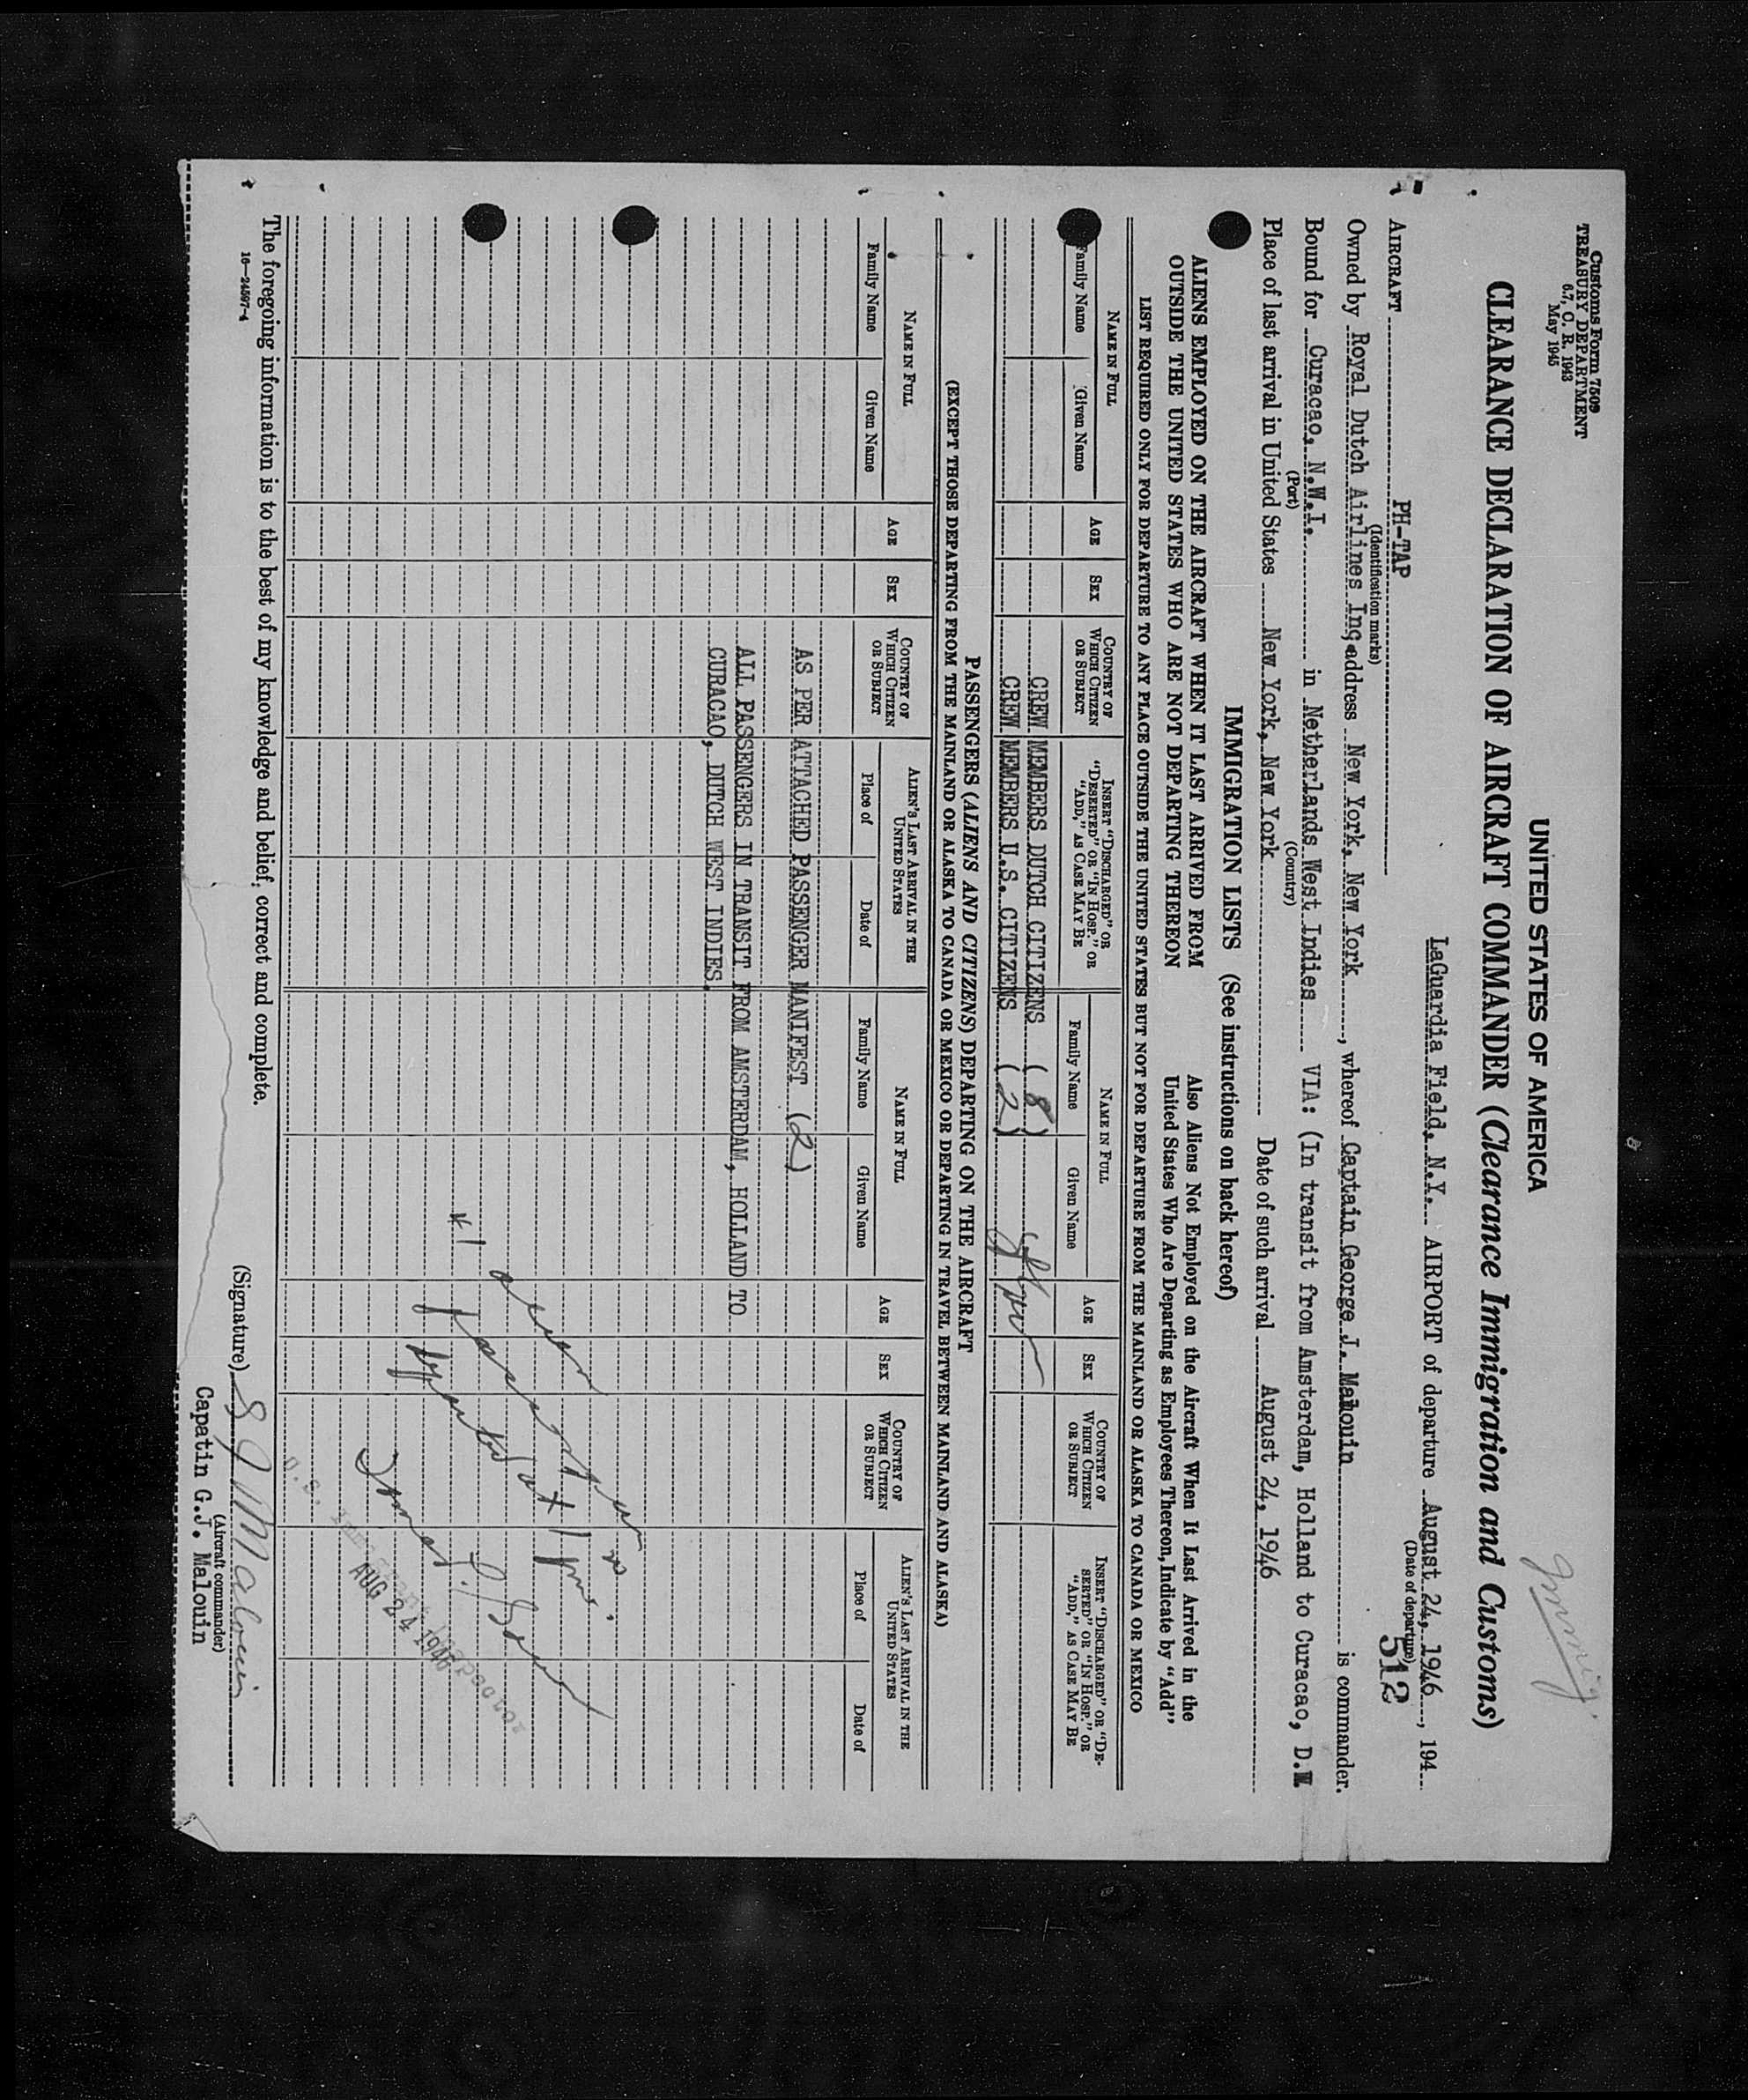 Customs Form 7509
TREASURY DEPARTMENT
6.7, C. R. 1943
May 1945
UNITED STATES OF AMERICA
CLEARANCE DECLARATION OF AIRCRAFT COMMANDER (Clearance Immigration and Customs)
LaGuardia Field, N.Y. AIRPORT of departure August 24, 1946, 194
(Date of departure)
512
AIRCRAFT PH-TAP
(Identification marks)
Owned by Royal Dutch Airlines Inc, address New York, New York, whereof Captain George J. Malouin is commander.
Bound for Curacao, N.W.I. in Netherlands West Indies VIA: (In transit from Amsterdam, Holland to Curacao, D.W
(Port) (Country)
Place of last arrival in United States New York, New York Date of such arrival August 24, 1946
IMMIGRATION LISTS (See instructions on back hereof)
ALIENS EMPLOYED ON THE AIRCRAFT WHEN IT LAST ARRIVED FROM
OUTSIDE THE UNITED STATES WHO ARE NOT DEPARTING THEREON
Also Aliens Not Employed on the Aircraft When It Last Arrived in the
United States Who Are Departing as Employees Thereon, Indicate by "Add"
LIST REQUIRED ONLY FOR DEPARTURE TO ANY PLACE OUTSIDE THE UNITED STATES BUT NOT FOR DEPARTURE FROM THE MAINLAND OR ALASKA TO CANADA OR MEXICO
NAME IN FULL
Family Name Given Name
AGE
SEX
COUNTRY OF
WHICH CITIZEN
OR SUBJECT
INSERT "DISCHARGED" OR
"DESERTED" OR "IN HOSP." OR
"ADD," AS CASE MAY BE
NAME IN FULL
Family Name Given Name
AGE
SEX
COUNTRY OF
WHICH CITIZEN
OR SUBJECT
INSERT "DISCHARGED" OR "DE-
SERTED" OR "IN HOSP." OR
"ADD," AS CASE MAY BE
CREW MEMBERS DUTCH CITIZENS (8)
CREW MEMBERS U.S. CITIZENS (2)
PASSENGERS (ALIENS AND CITIZENS) DEPARTING ON THE AIRCRAFT
(EXCEPT THOSE DEPARTING FROM THE MAINLAND OR ALASKA TO CANADA OR MEXICO OR DEPARTING IN TRAVEL BETWEEN MAINLAND AND ALASKA)
NAME IN FULL
Family Name Given Name
AGE
SEX
COUNTRY OF
WHICH CITIZEN
OR SUBJECT
ALIEN'S LAST ARRIVAL IN THE
UNITED STATES
Place of Date of
NAME IN FULL
Family Name Given Name
AGE
SEX
COUNTRY OF
WHICH CITIZEN
OR SUBJECT
ALIEN'S LAST ARRIVAL IN THE
UNITED STATES
Place of Date of
AS PER ATTACHED PASSENGER MANIFEST (2)
ALL PASSENGERS IN TRANSIT FROM AMSTERDAM, HOLLAND TO
CURACAO, DUTCH WEST INDIES.
U.S. Immigrant Inspector
AUG 24 1946
The foregoing information is to the best of my knowledge and belief, correct and complete.
(Signature) G J Malouin
(Aircraft commander)
Capatin G.J. Malouin
16—24597-4